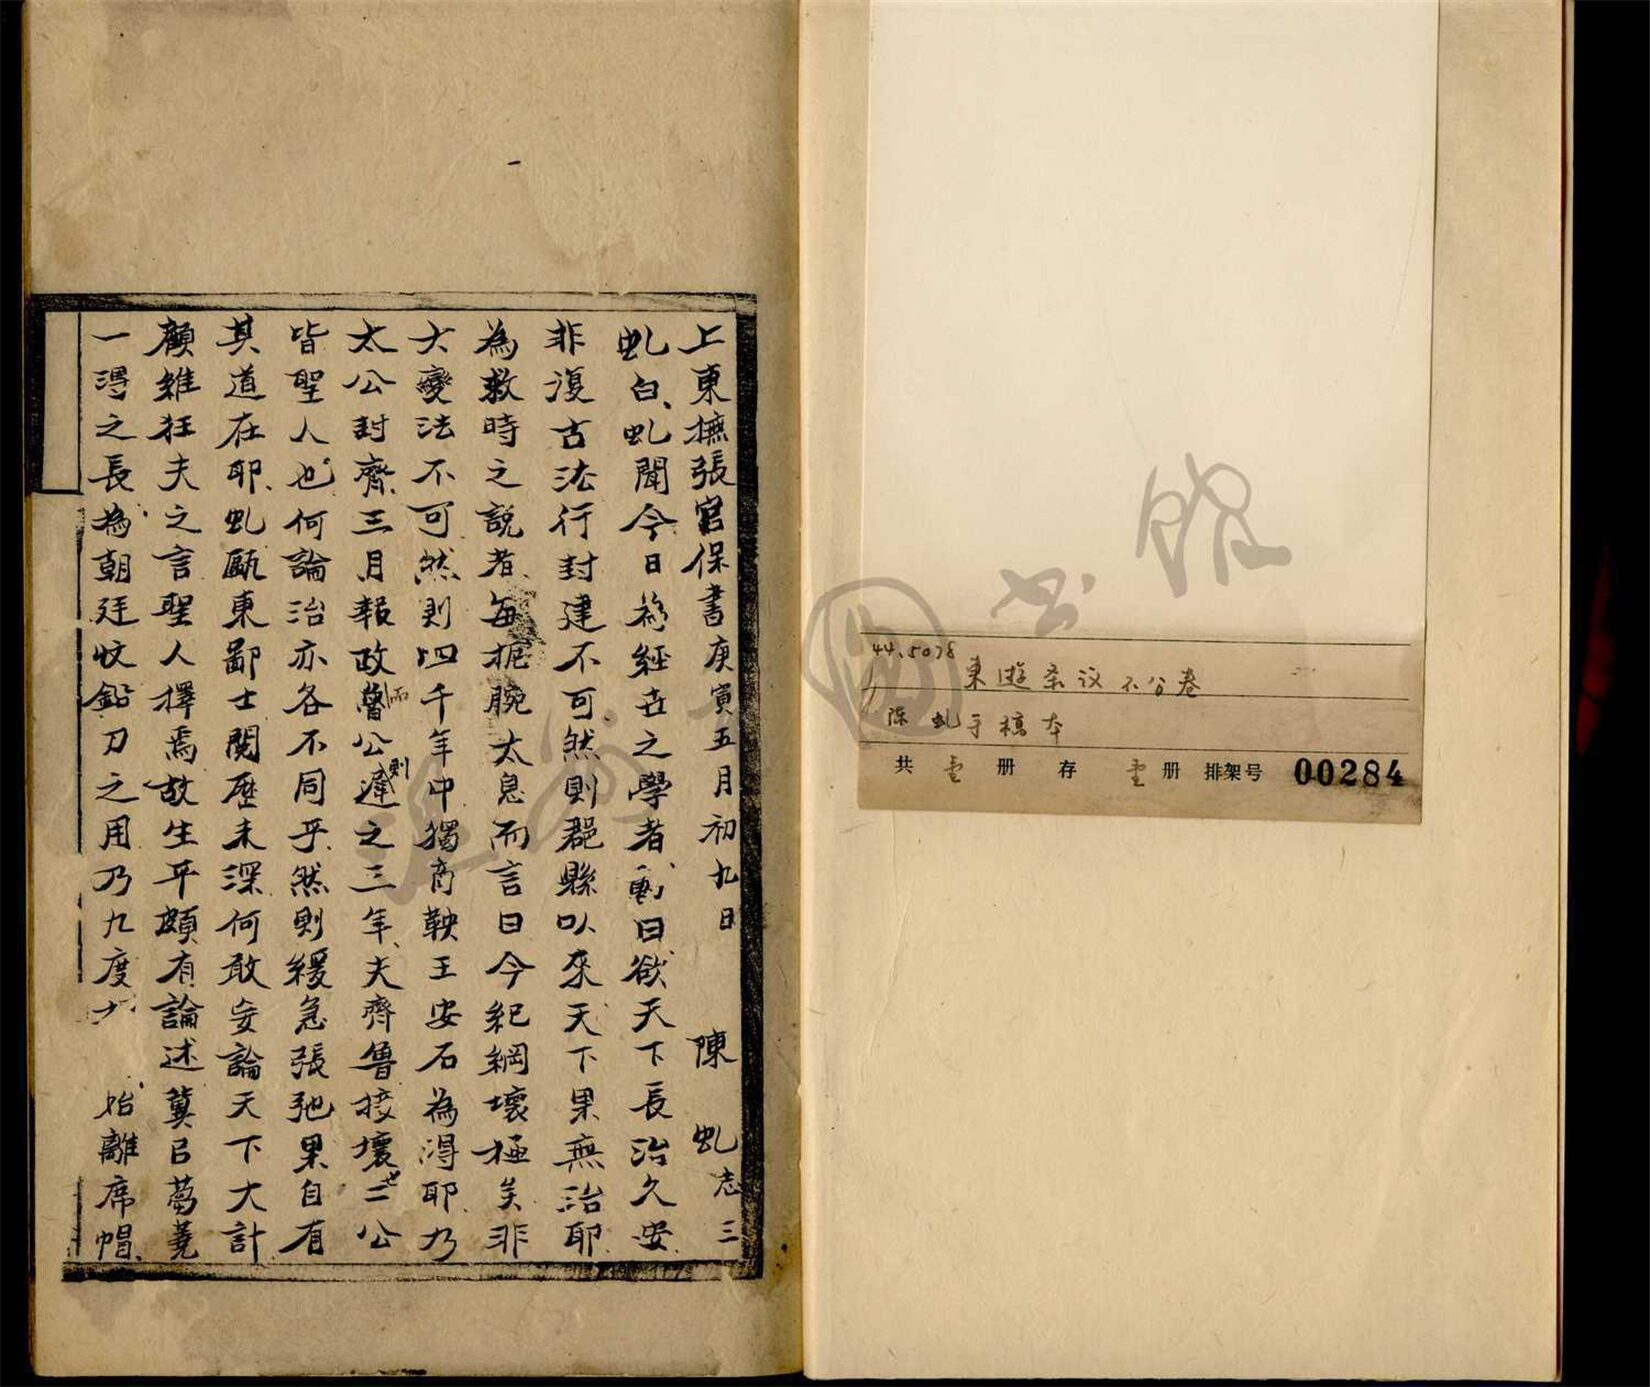 上東撫張宮保書庚寅五月初九日 陳虬志三
虬白虬聞今日務經世之學者動曰欲天下長治久安
非復古法行封建不可然則郡縣以來天下果無治耶
為救時之說者每扼腕太息而言曰今紀綱壞極矣非
大變法不可然則四千年中獨商鞅王安石為得耶乃
太公封齊三月報政而魯公則遲之三年夫齊魯接壤也二公
皆聖人也何論治亦各不同乎然則緩急張弛果自有
其道在耶虬甌東鄙士閱歷未深何敢妄論天下大計
顧維狂夫之言聖人擇焉故生平頗有論述冀曰蒭蕘
一得之長為朝廷收鉛刀之用乃九度 始離席帽
44.5078
東遊条议不分卷
陈虬手稿本
共壹册存壹册排架号00284